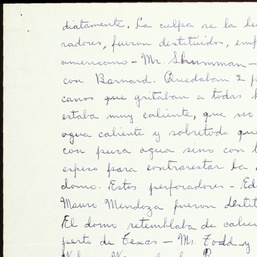 diatamente. La culpa se la
radores, fueron destituidos,
americano - Mr. Shumman -
con Barnard. Quedaban 2
canos que gritaban a todas
estaba muy caliente, que no
agua caliente y sobretodo que
con pura agua sino con
espeso para contrarestar la
domo. Estos perforadores -
Mauro Mendoza fueron
El domo retemblaba de
perto de Texas - Mr. Todd, y